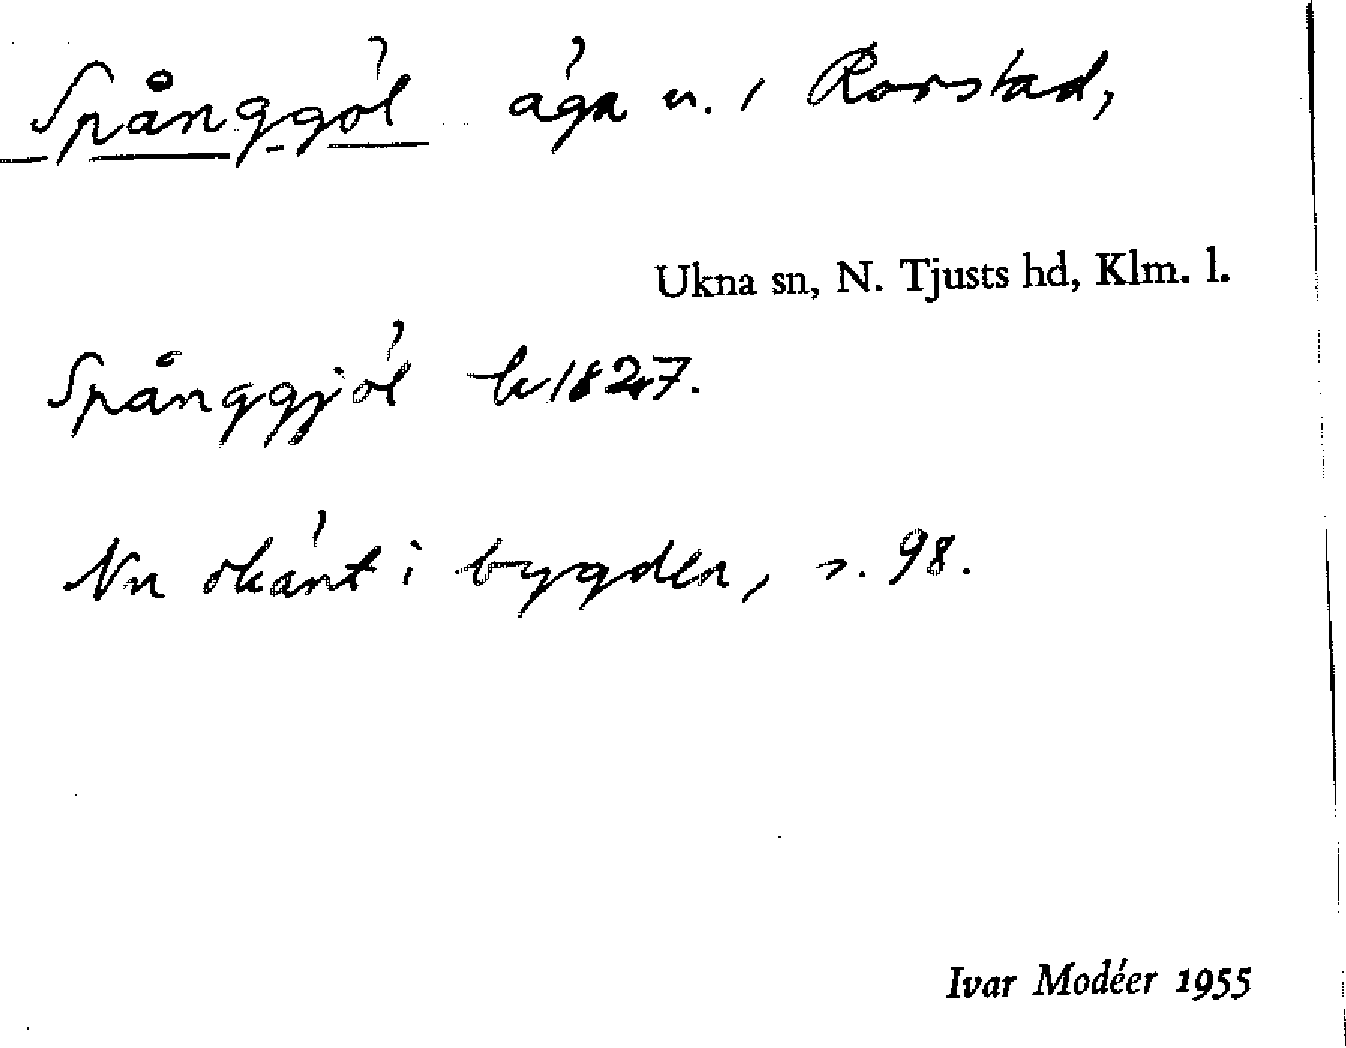 Spånggöl äga n. i Rorstad,
Ukna sn, N. Tjusts hd, Klm. l.
Spånggjöl k 1827.
Nu okänt i bygden, s. 98.
Ivar Modéer 1955